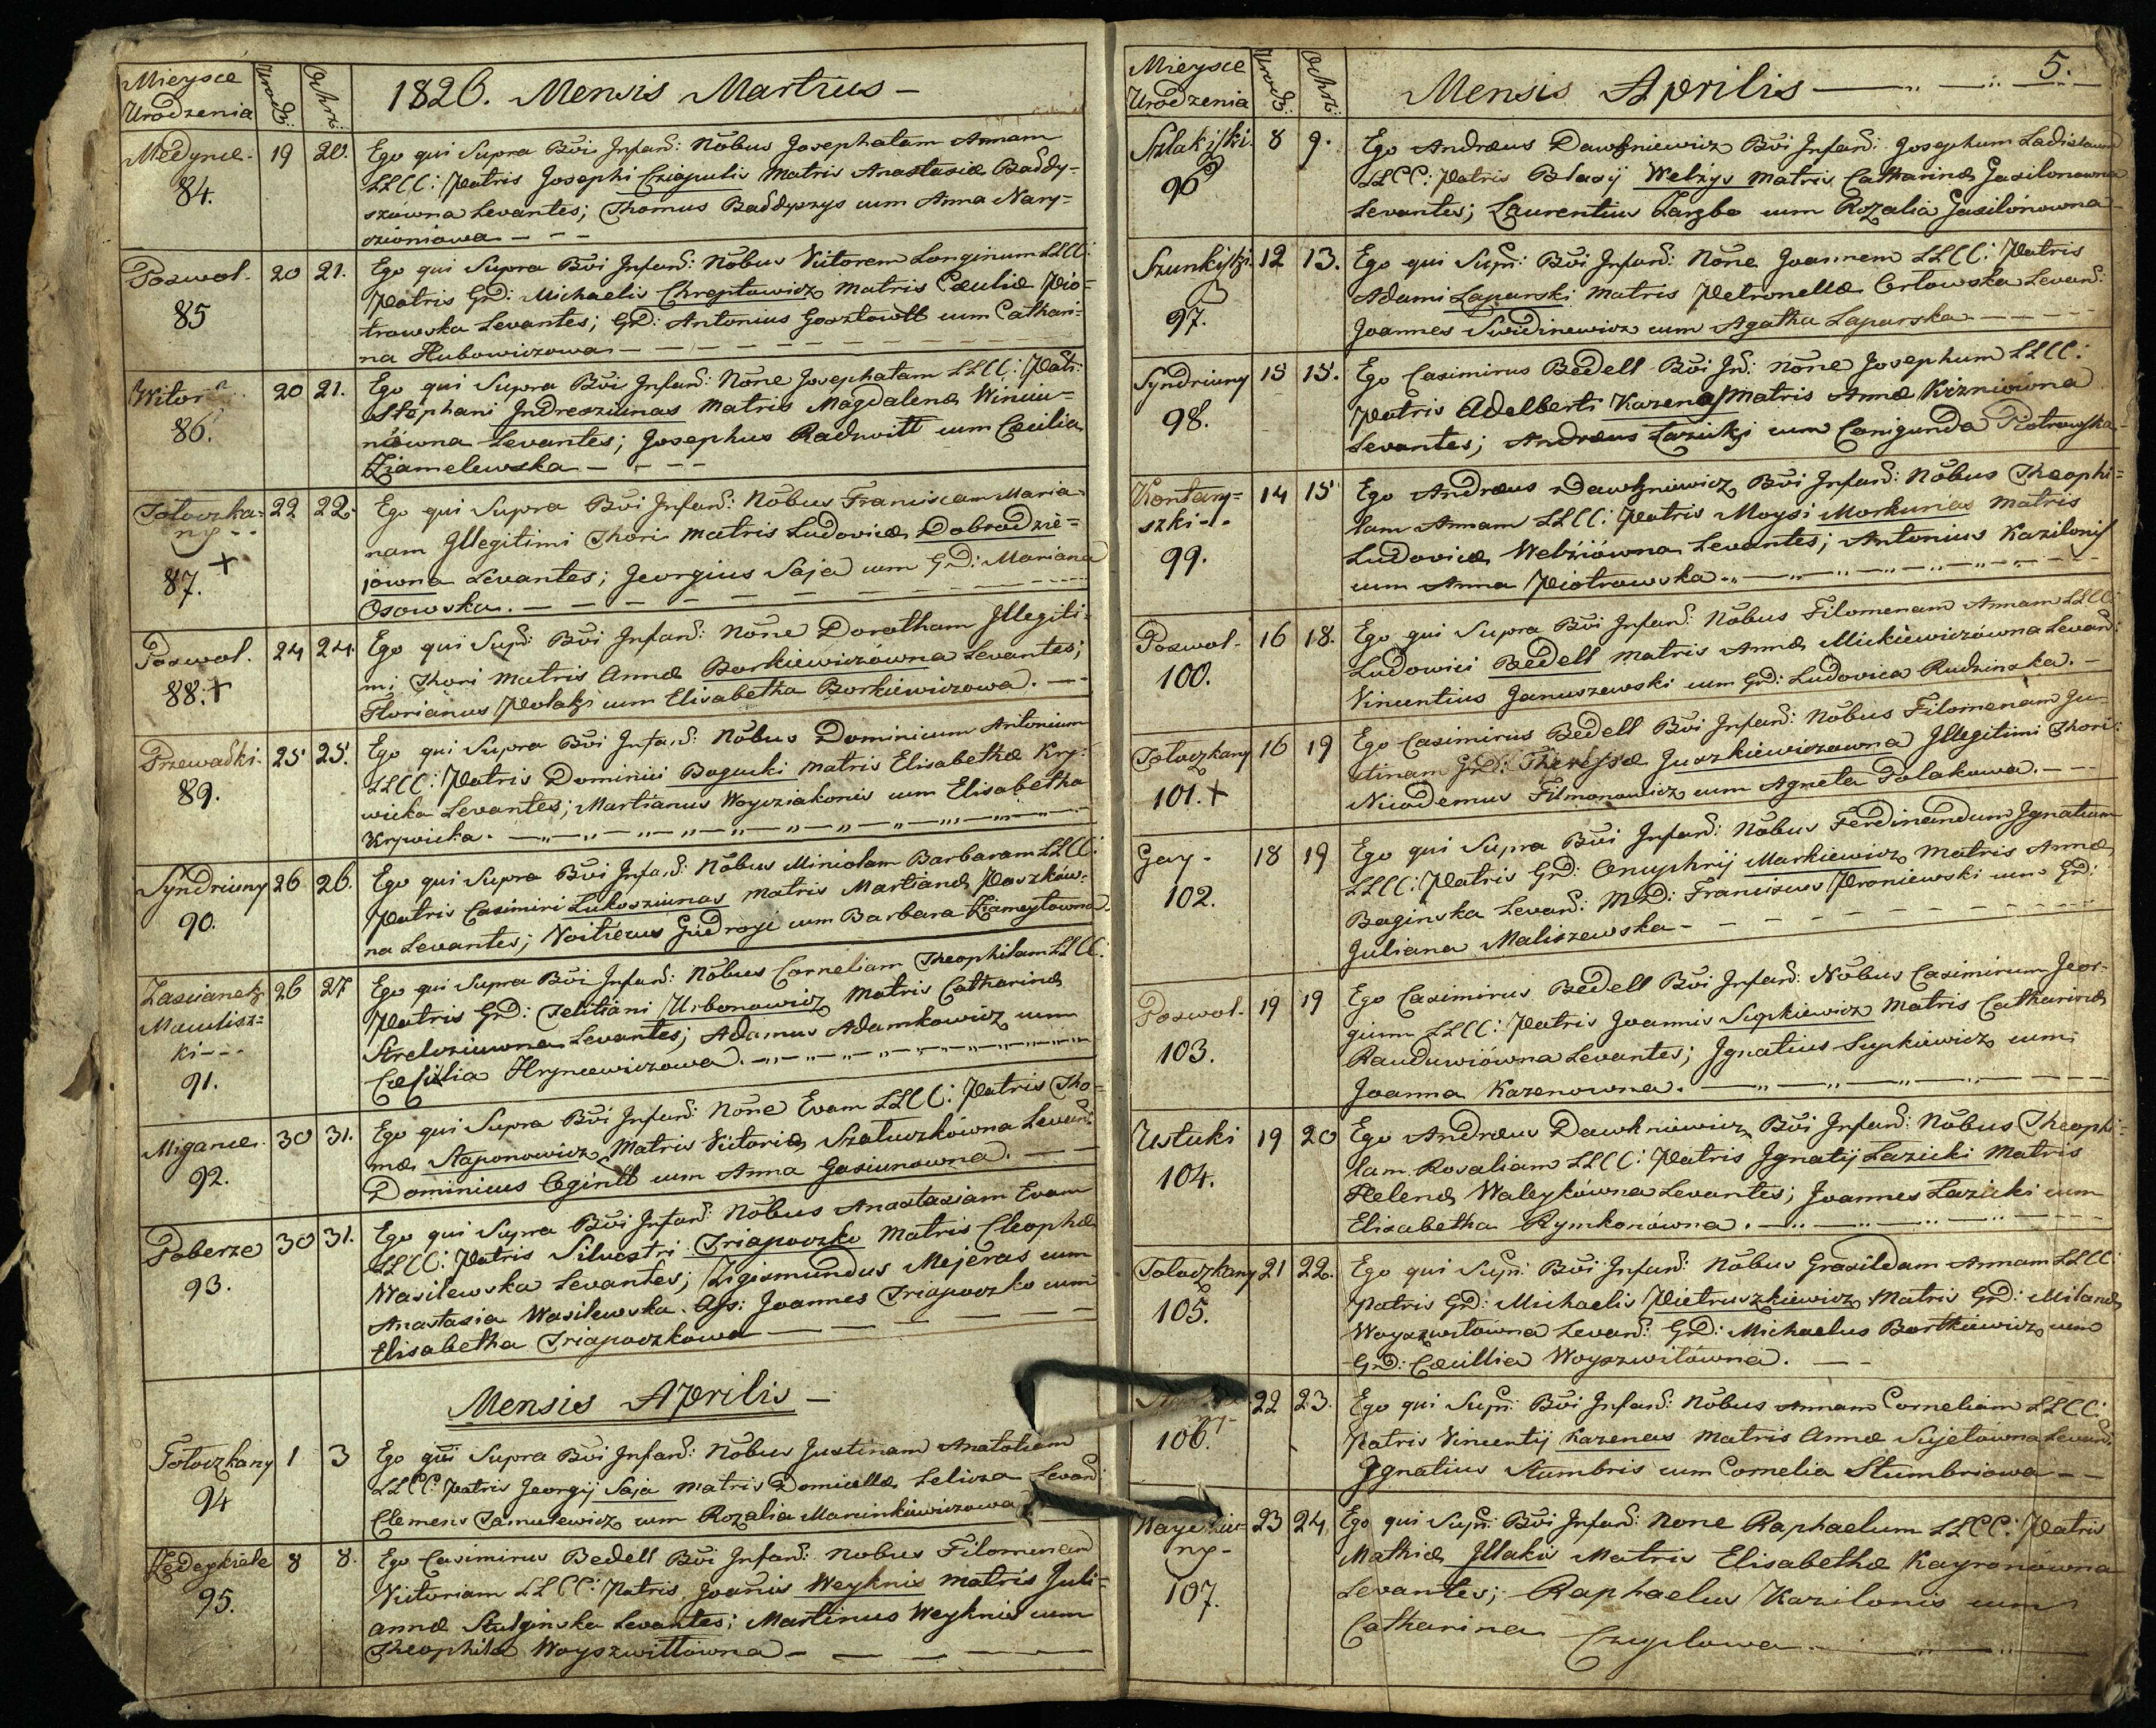 Mieysce Urodzenia
Urodz:
Ochrz:
1826. Mensis Martius –
Medynie. 19 20. Ego qui Supra Bvi Infand: Nõbus Josephatam Annam
84. LLCC: Patris Josephi Criapulis Matris Anastasiæ Baddy=
szówna Levantes; Thomas Baddyszys cum Anna Nary=
szioniowa – – –
Poswol. 20 21. Ego qui Supra Bvi Infand: Nõbus Victorem Longinum LLCC:
85 Patris GD: Michaelis Chreptowicz Matris Cæciliæ Pio=
trowska Levantes; GD: Antonius Gosztowtt cum Cathari=
na Hubowiczowa –
20 21. Ego qui Supra Bvi Infand: Nõne Josephatam LLCC: Patr:
86. Stephani Indreszunas Matris Magdalenæ Winciu=
niówna Levantes; Josephus Radzwitt cum Cæcilia
Ziamelewska – – – –
Tołoczka=
ny – – 22 22. Ego qui Supra Bvi Infand: Nõbus Franciscam Maria=
87. + nam Illegitimi Thori Matris Ludovicæ Dobrodzie=
jowna Levantes; Georgius Saja cum GD: Mariana
Osowska. –
Poswol. 24 24. Ego qui Supr: Bvi Infand: Nõne Dorotham Illegiti=
88. + mi Thori Matris Annæ Borkiewiczówna Levantes;
Florianus Polakj cum Elisabetha Borkiewiczowa. –
Przewadki. 25 25. Ego qui Supra Bvi Infand: Nõbus Dominicum Antonium
89. LLCC: Patris Dominici Bogucki Matris Elisabethæ Kry=
wicka Levantes; Martianus Woycziakonis cum Elisabetha
Krywicka. –
Syndriuny 26 26. Ego qui Supra Bvi Infand: Nõbus Miniolam Barbaram LLCC:
90. Patris Casimiri Łukosziunas Matris Martianæ Paszków=
na Levantes; Voitieus Giedroyc cum Barbara Ziameytowna.
Zascianek
Maulisz=
ki – – –
26 27 Ego qui Supra Bvi Infand: Nõbus Corneliam Theophilam LLCC:
91. Patris GD: Felitiani Urbonowicz Matris Catharinæ
Strelcziuwna Levantes; Adamus Adamkowicz cum
Cæsilia Hryncewiczowa. –
Migance. 30 31. Ego qui Supra Bvi Infand: Nõne Evam LLCC: Patris Tho=
92. mæ Staponowicz Matris Victoriæ Szatuczkówna Levand:
Dominicus Ogintt cum Anna Gasiunowna. – –
Poberze 30 31. Ego qui Supra Bvi Infand: Nõbus Anastasiam Evam
93. LLCC: Patris Silvestri Triapoczko Matris Cleophæ
Wasilewska Levantes; Zigismundus Mejeras cum
Anastasia Wasilewska. Ass: Joannes Triapoczko cum
Elisabetha Triapoczkowa –
Mensis Aprilis –
Tołoczkany 1 3 Ego qui Supra Bvi Infand: Nõbus Justinam Anatoliam
94 LLCC: Patris Georgij Saja Matris Domicellæ Lelicza Levan:
Clemens Samulewicz cum Rozalia Marcinkiewiczowa
8 8. Ego Casimirus Bedell Bvi Infand: Nobus Filomenam
95. Victoriam LLCC: Patris Joañis Weyknis Matris Juli=
annæ Stulginska Levantes; Martinus Weyknis cum
Theophila Woyszwittówna –
Mieysce Urodzenia
Urodz:
Ochrz:
Mensis Aprilis – 5.
Szlakiszki. 8 9. Ego Andreas Dawkniewicz Bvi Infand: Josephum Ladislaum
96 LLCC: Patris Blasij Welzys Matris Catharinæ Gasilonowna
Levantes; Laurentius Zarzbo cum Rozalia Gasilónowna
Szunkiszki. 12 13. Ego qui Supr: Bvi Infand: Nõne Joannem LLCC: Patris
97. Adami Łaparski Matris Petronellæ Orłowska Levand:
Joannes Swidinewicz cum Agatha Łaparska –
Syndriuny 15 15. Ego Casimirus Bedell Bvi Jn: Nõne Josephum LLCC:
98. Patris Adelberti Kazenas Matris Annæ Kizniówna
Levantes; Andreas Łazickj cum Conigunda Piotrowska
Kontary=
szki – 14 15 Ego Andreas Dawkniewicz Bvi Infand: Nõbus Theophi=
99. lam Annam LLCC: Patris Moysi Morkunas Matris
Ludovicæ Webžiówna Levantes; Antonius Kazilonis
cum Anna Piotrowska. –
Poswol. 16 18. Ego qui Supra Bvi Infand: Nõbus Filomenam Annam LLCC:
100. Ludowici Bedell Matris Annæ Mickiewiczówna Levand:
Vincentius Januszewski cum GD: Ludovica Rudzinska. –
Tołoczkany 16 19 Ego Casimirus Bedell Bvi Infand: Nõbus Filomenam Ju=
101. + stinam GD: Theressæ Juszkiewiczowna Illegitimi Thori:
Nicodemus Filmonowicz cum Agneta Polakowa. – –
Gay. 18 19 Ego qui Supra Bvi Infand: Nõbus Ferdinandum Ignatium
102. LLCC: Patris GD: Onuphrij Markiewicz Matris Annæ
Baginska Levand: MD: Franciscus Proniewski cum GD:
Juliana Maliszewska –
Poswol. 19 19 Ego Casimirus Bedell Bvi Infand: Nõbus Casimirum Geor=
103. gium LLCC: Patris Joannis Supkiewicz Matris Catharinæ
Rauduwiówna Levantes; Ignatius Supkiewicz cum
Joanna Kazenowna. –
Ustuki 19 20 Ego Andreas Dawkniewicz Bvi Infand: Nõbus Theophi=
104. lam Rosaliam LLCC: Patris Ignatij Łazicki Matris
Helenæ Waleykówna Levantes; Joannes Łazicki cum
Elisabetha Rymkonówna. –
Tołoczkany 21 22. Ego qui Supr: Bvi Infand: Nõbus Grasildam Annam LLCC:
105. Patris GD: Michaelis Pietruszkiewicz Matris GD: Milanæ
Woyszwitówna Levand: GD: Michaelus Bortkiewicz cum
GD: Cæcillia Woyszwitówna. – –
22 23. Ego qui Supr: Bvi Infand: Nõbus Annam Corneliam LLCC:
106. Patris Vincentij Kazenas Matris Annæ Sujetówna Levand:
Ignatius Stumbris cum Cornelia Stumbriowa – –
23 24. Ego qui Supr: Bvi Infand: None Raphaelum LLCC: Patris
ny –
107. Mathiæ Illakis Matris Elisabethæ Kayronówna
Levantes; Raphaelus Kazilonis cum
Catharina Czyplowa. –